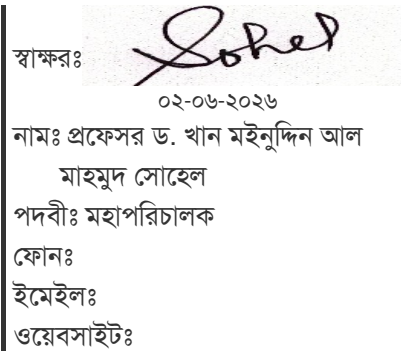 স্বাক্ষরঃ Sohel
০২-০৬-২০২৬
নামঃ প্রফেসর ড. খান মইনুদ্দিন আল
মাহমুদ সোহেল
পদবীঃ মহাপরিচালক
ফোনঃ
ইমেইলঃ
ওয়েবসাইটঃ